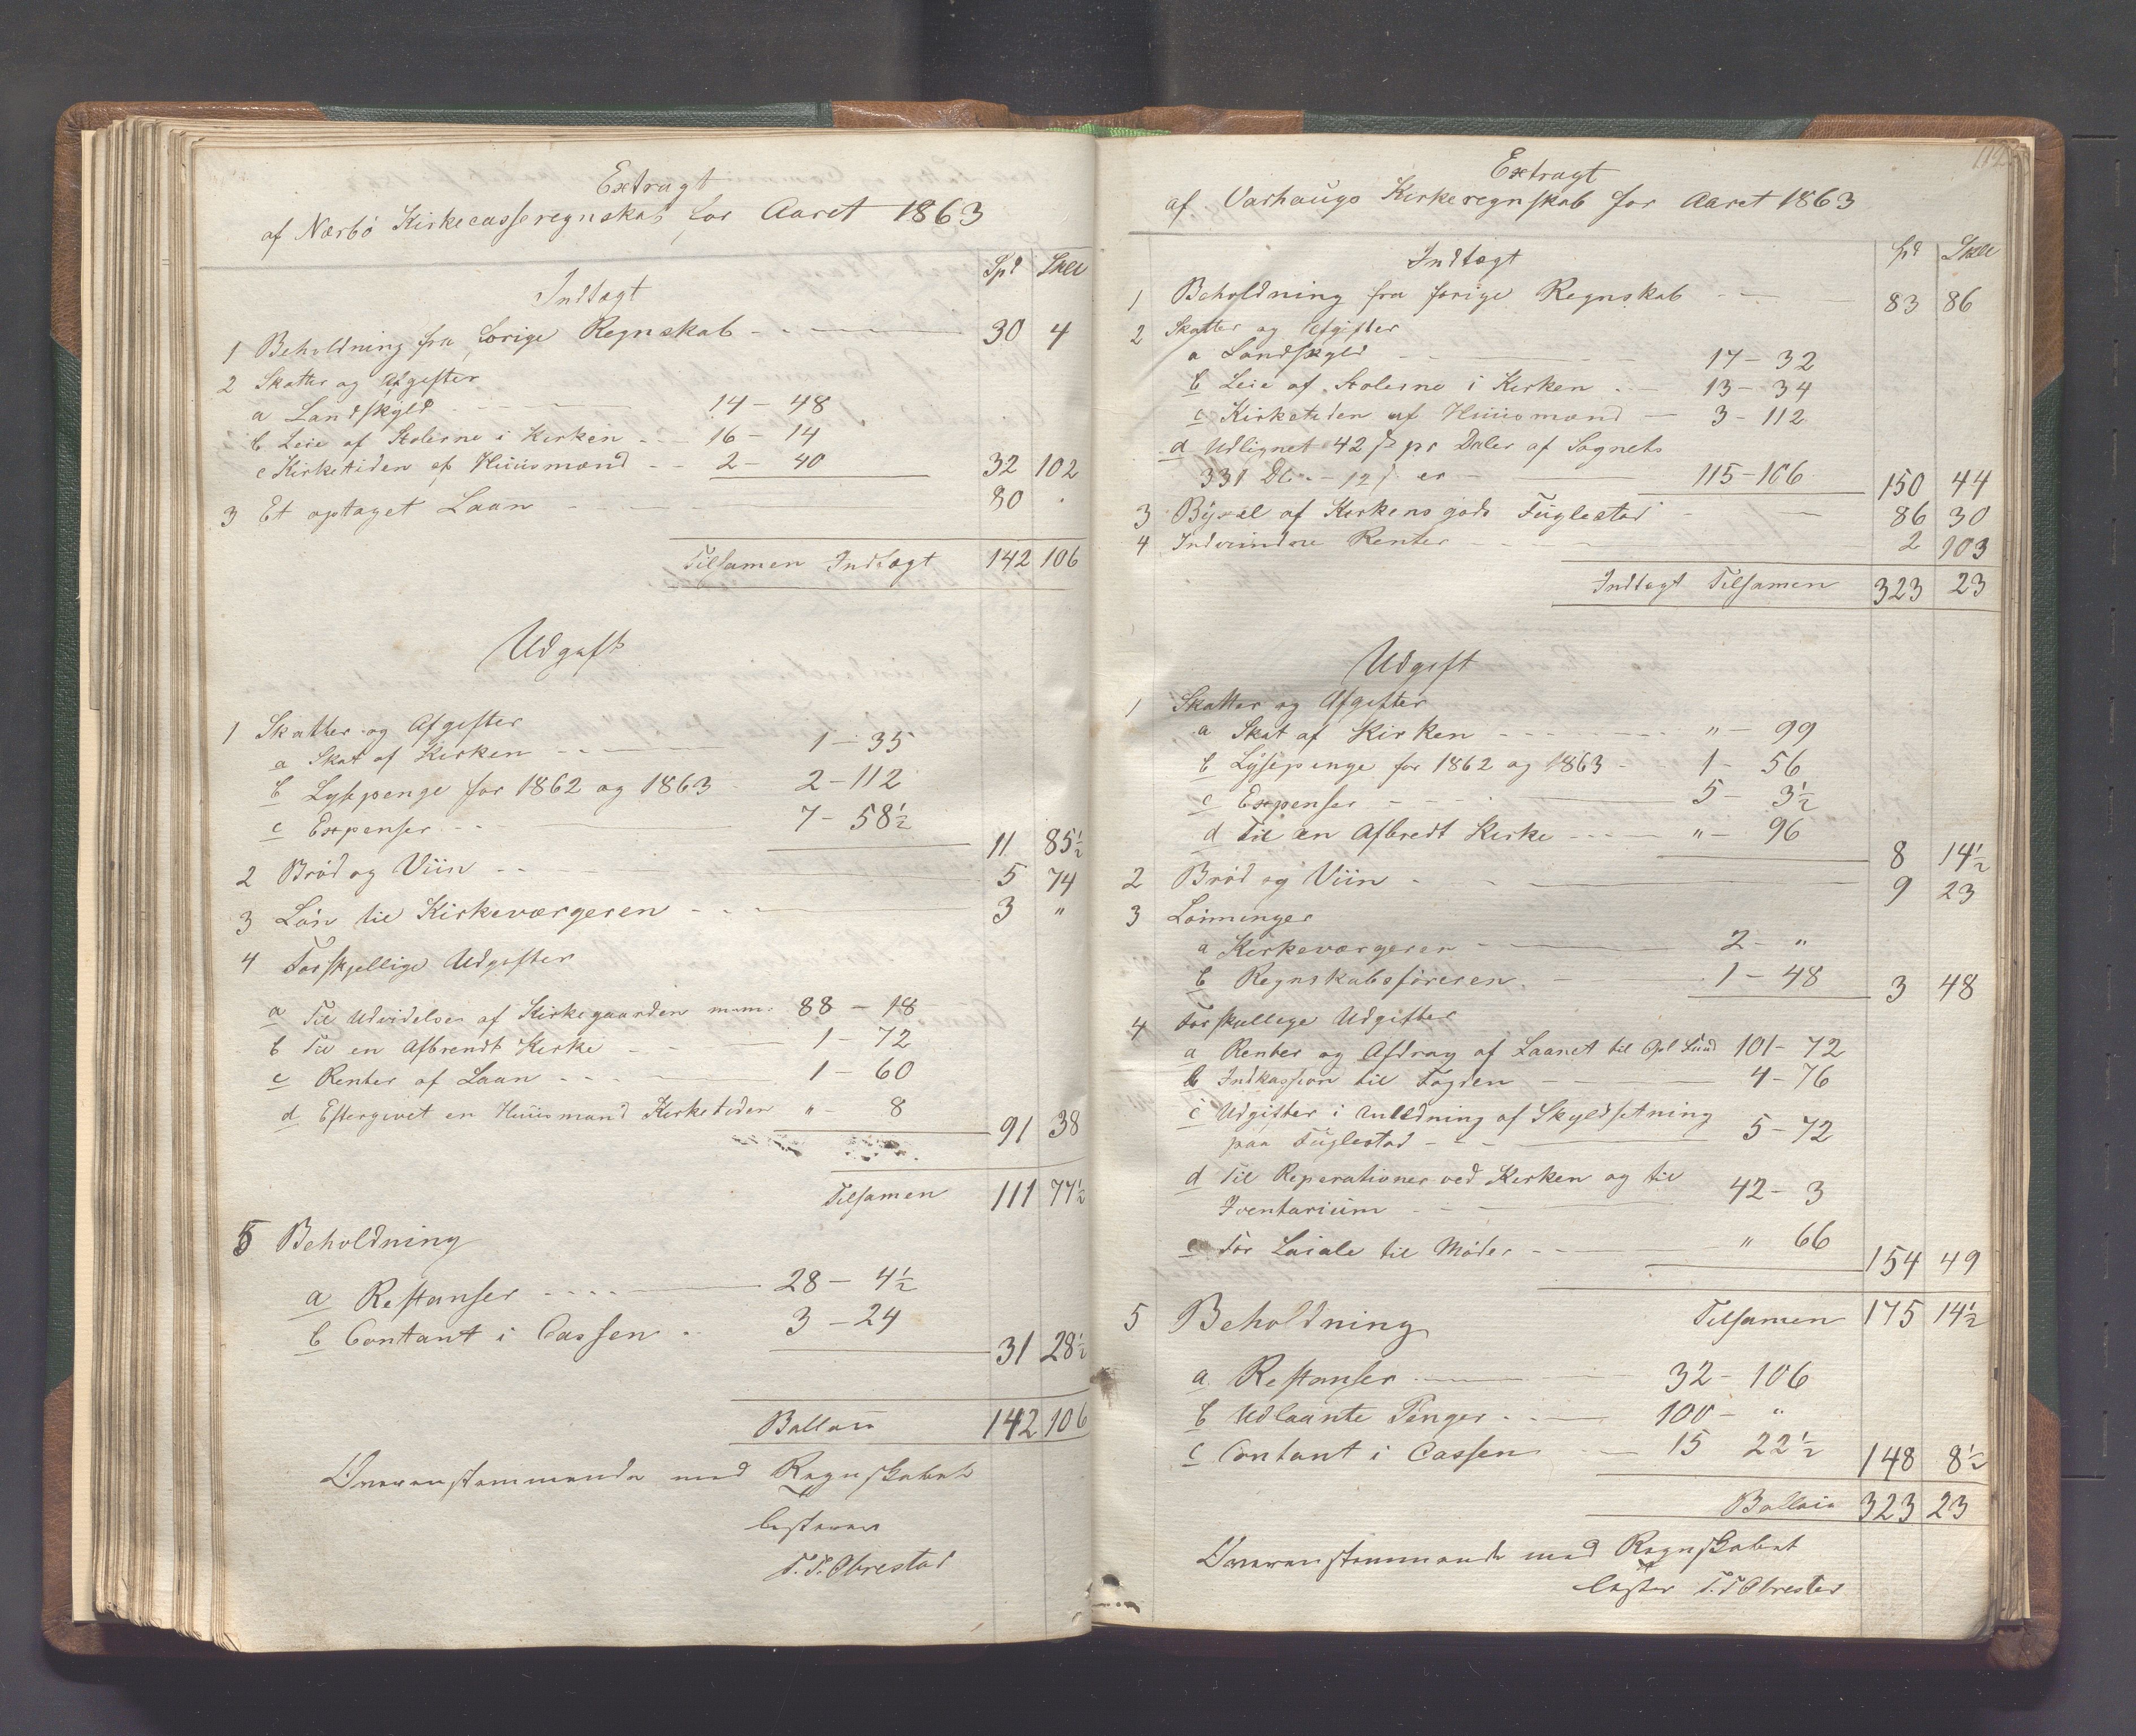 Extragt
af Nærbö Kirkecasseregnskab for Aaret 1863
Spd Skll
Indtægt
1 Beholdning fra forige Regnskab 30 4
2 Skatter og Afgifter
a Landskyld 14 - 48
b Leie af Stolerne i Kirken 16 - 14
c Kirketiden af Huusmænd 2 - 40 32 102
3 Et optaget Laan 80 .
Tilsamen Indtægt 142 106
Udgift
1 Skatter og Afgifter
a Skat af Kirken 1 - 35
b Lysepenge for 1862 og 1863 2 - 112
c Expenser 7 - 58½ 11 85½
2 Bröd og Viin 5 74
3 Lön til Kirkeværgeren 3 "
4 Forskjellige Udgifter
a Til Udvidelse af Kirkegaarden m.m. 88 - 18
b Til en Afbrendt Kirke 1 - 72
c Renter af Laan 1 - 60
d Eftergivet en Huusmand Kirketiden " - 8 91 38
Tilsamen 111 77½
5 Beholdning
a Restanser 28 - 4½
b Contant i Cassen 3 - 24 31 28½
Ballan 142 106
Overensstemmende med Regnskabet
T. T. Obrestad
112
Extragt
af Varhaugs Kirkeregnskab for Aaret 1863
Indtægt Spd Skll
1 Beholdning fra forige Regnskab 83 86
2 Skatter og Afgifter
a Landskyld 17 - 32
b Leie af Stolerne i Kirken 13 - 34
c Kirketiden af Huusmænd 3 - 112
d Udlignet 42 ß pr Daler af Sognets
331 Dlr - 12 ß er 115 - 106 150 44
3 Byxel af Kirkens gods Fuglestad 86 30
4 Indvundne Renter 2 103
Indtægt Tilsamen 323 23
Udgift
1 Skatter og Afgifter
a Skat af Kirken " - 99
b Lysepenge for 1862 og 1863 1 - 56
c Expenser 5 - 3½
d Til en Afbredt Kirke " - 96 8 14½
2 Bröd og Viin 9 23
3 Lönninger
a Kirkeværgeren 2 - "
b Regnskabsföreren 1 - 48 3 48
4 Forskjellige Udgifter
a Renter og Afdrag af Laanet til Opl. Fund 101 - 72
b Indkassion til Fogden 4 - 76
c Udgifter i Anledning af Skyldsetning
paa Fuglestad 5 - 72
d Til Reperationer ved Kirken og til
Iventarium 42 - 3
e For Locale til Möder " 66 154 49
Tilsamen 175 14½
5 Beholdning
a Restanser 32 - 106
b Udlaante Penger 100 - "
c Contant i Cassen 15 22½ 148 8½
Ballan 323 23
Overensstemmende med Regnskabet
T. T. Obrestad